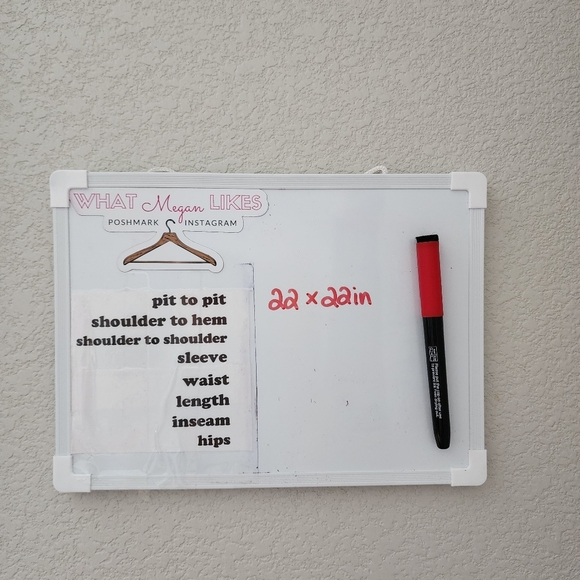 WHAT Megan LIKES
POSHMARK INSTAGRAM
pit to pit
22 x 22in
shoulder to hem
shoulder to shoulder
sleeve
waist
length
inseam
hips